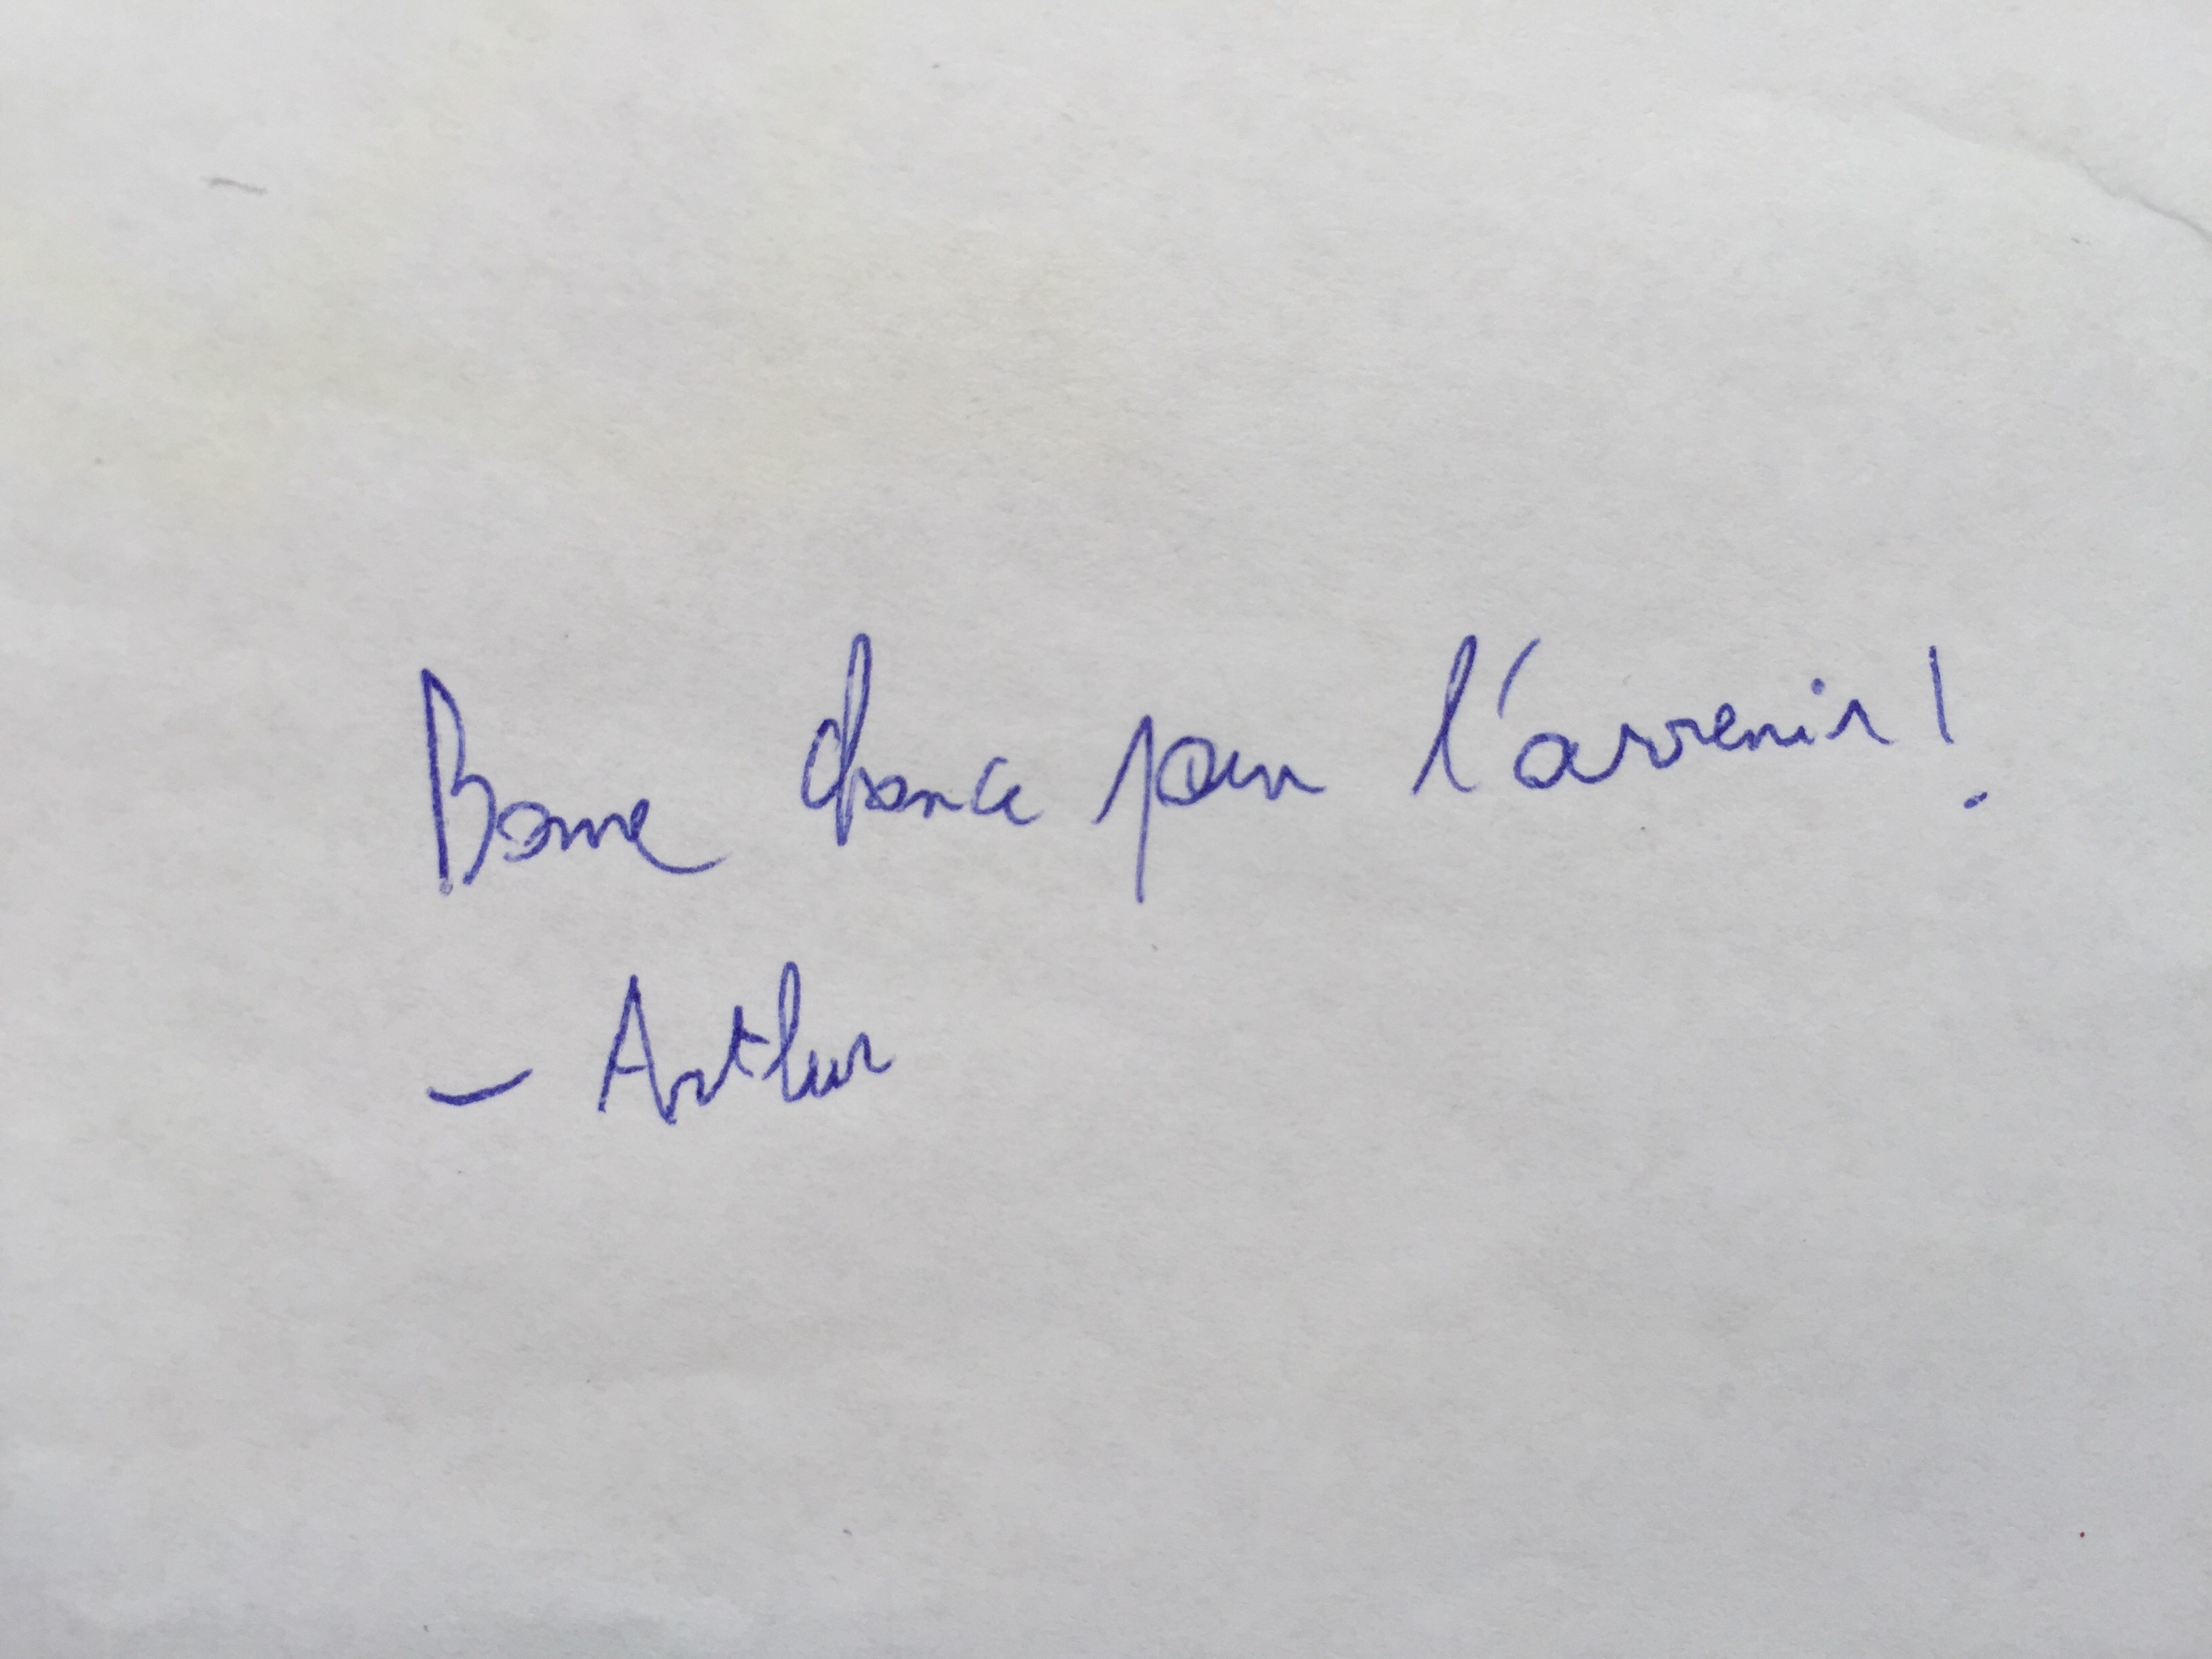 Bonne chance pour l'avenir !
- Arthur